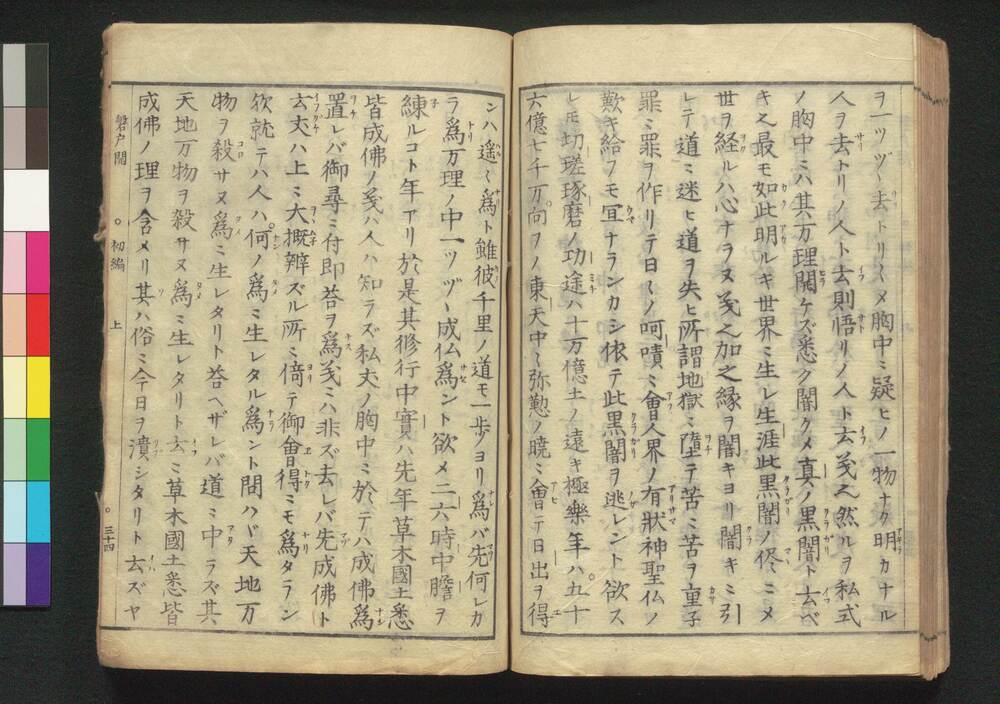 ヲ一ツヅヽ去トリ〳〵メ胸中ニ疑ヒノ一物ナク明カナル
人ヲ去トリノ人ト去則悟リノ人ト云義之然ルヲ私式
ノ胸中ニハ其万理開ケズ悉ク闇クメ真ノ黒闇ト云ベ
キ之最モ如此明ルキ世界ニ生レ生涯此黒闇ノ侭ニメ
世ヲ経ルハ心ナラヌ義之加之縁ヲ闇キヨリ闇キニ引
レテ道ニ迷ヒ道ヲ失ヒ所謂地獄ニ墮テ苦ニ苦ヲ重子
罪ニ罪ヲ作リテ日々ノ呵嘖ニ會人界ノ有狀神聖仏ノ
歎キ給フモ宜ナランカシ依テ此黒闇ヲ逃レント欲ス
レモ切瑳琢磨ノ功途ハ十万億土ノ遠キ極樂年ハ五十
六億七千万向フノ東天中ニ弥勤ノ暁ニ會テ日出ヲ得
ンハ遥ニ爲ト雖彼千里ノ道モ一歩ノヨリ爲バ先何レカ
ラ爲万理ノ中一ツヅヽ成仏爲ント欲メ二六時中膽ヲ
練ルコト年アリ於是其修行中實ハ先年草木國土悉
皆成佛ノ義ハ人ハ知ラズ私丈ノ胸中ニ於テハ成佛爲
置レバ御尋ニ付即荅ヲ爲義ニハ非ズ去レバ先成佛ト
云丈ハ上ニ大概辨ズル所ニ倚テ御會得ニモ爲タラン
欤就テハ人ハ何ノ爲ニ生レタル爲ント問ハド天地万
物ヲ殺サヌ爲ニ生レタリト荅ヘザレバ道ニ中ラズ其
天地万物ヲ殺サヌ爲ニ生レタリト云ニ草木國土悉皆
成佛ノ理ヲ含メリ其ハ俗ニ今日ヲ潰シタリト云ズヤ
磐戸開　○初編　上　○三十四